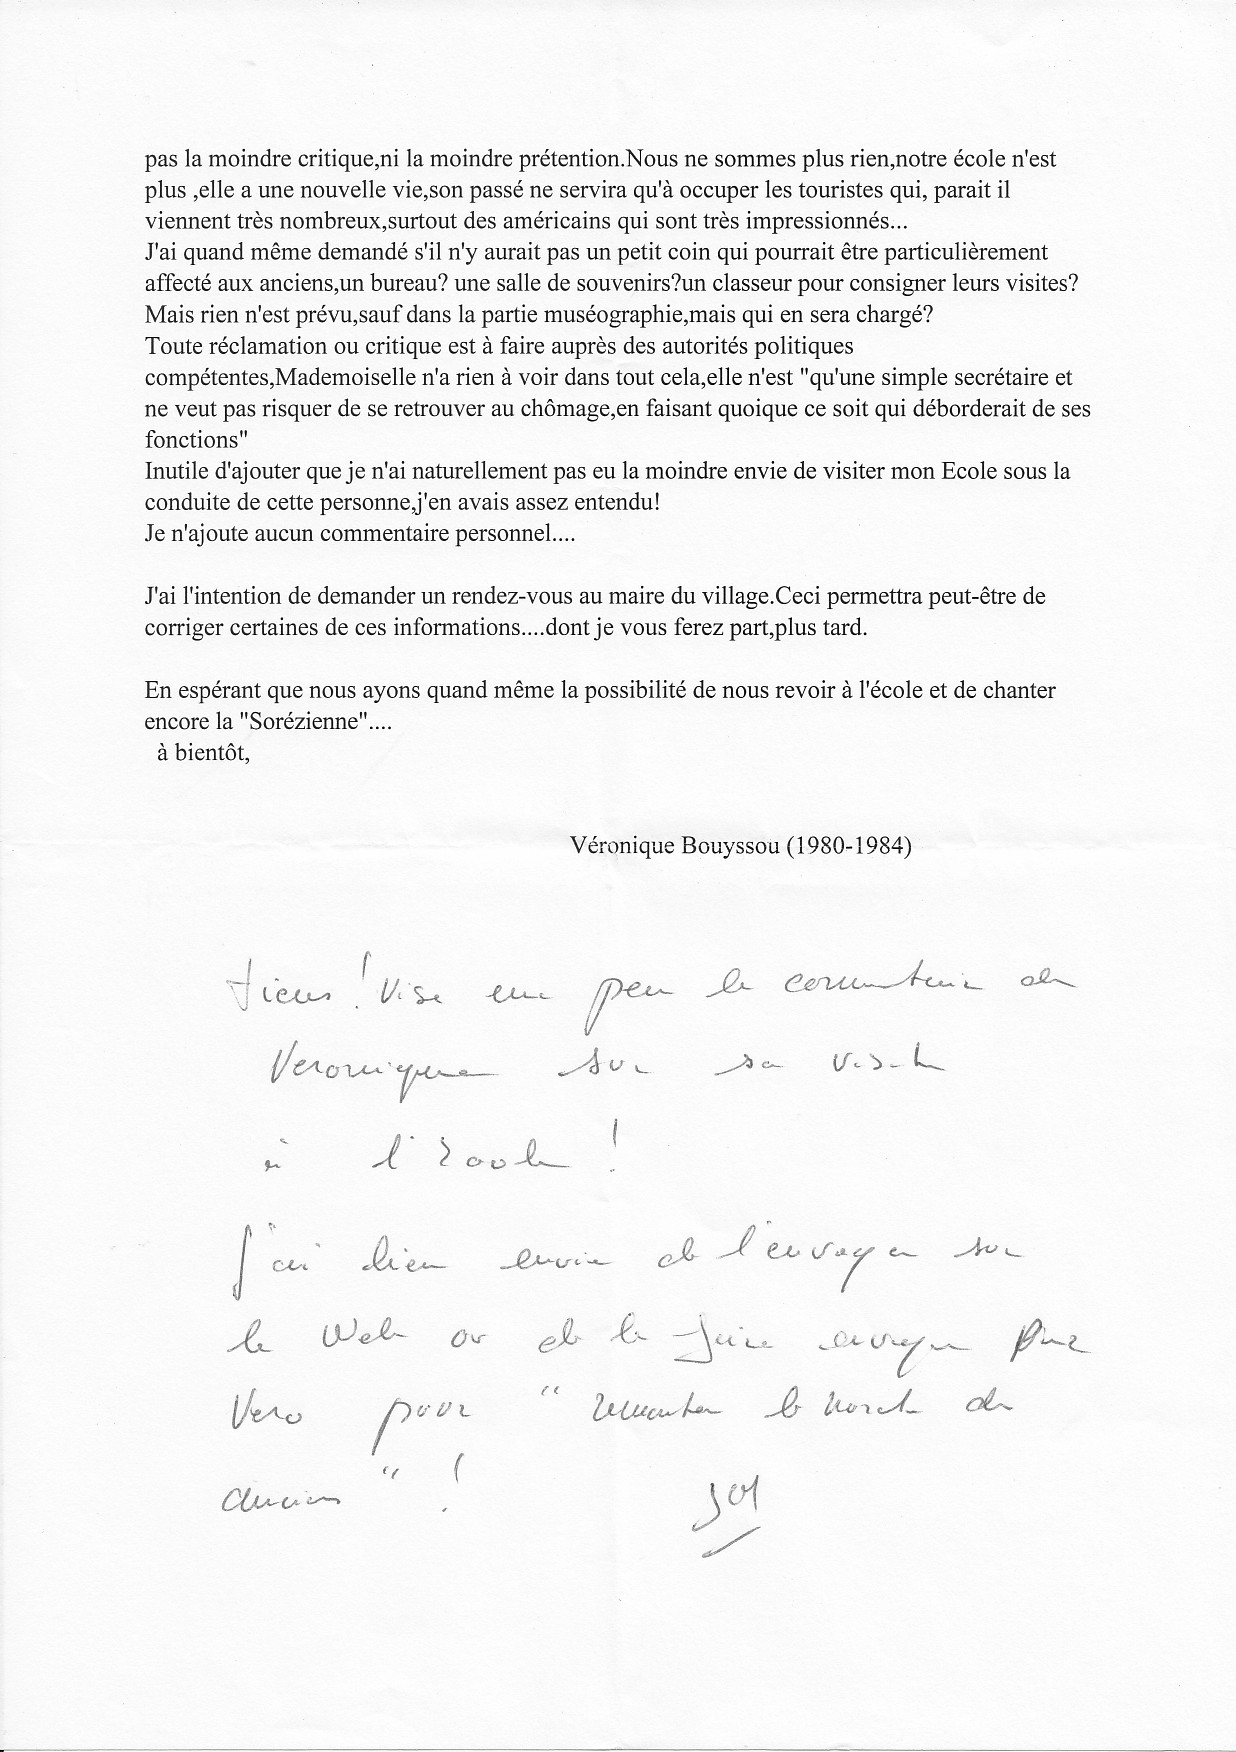 pas la moindre critique,ni la moindre prétention.Nous ne sommes plus rien,notre école n'est
plus ,elle a une nouvelle vie,son passé ne servira qu'à occuper les touristes qui, parait il
viennent très nombreux,surtout des américains qui sont très impressionnés...
J'ai quand même demandé s'il n'y aurait pas un petit coin qui pourrait être particulièrement
affecté aux anciens,un bureau? une salle de souvenirs?un classeur pour consigner leurs visites?
Mais rien n'est prévu,sauf dans la partie muséographie,mais qui en sera chargé?
Toute réclamation ou critique est à faire auprès des autorités politiques
compétentes,Mademoiselle n'a rien à voir dans tout cela,elle n'est "qu'une simple secrétaire et
ne veut pas risquer de se retrouver au chômage,en faisant quoique ce soit qui déborderait de ses
fonctions"
Inutile d'ajouter que je n'ai naturellement pas eu la moindre envie de visiter mon Ecole sous la
conduite de cette personne,j'en avais assez entendu!
Je n'ajoute aucun commentaire personnel....
J'ai l'intention de demander un rendez-vous au maire du village.Ceci permettra peut-être de
corriger certaines de ces informations....dont je vous ferez part,plus tard.
En espérant que nous ayons quand même la possibilité de nous revoir à l'école et de chanter
encore la "Sorézienne"....
à bientôt,
Véronique Bouyssou (1980-1984)
Tiens! Vise un peu le commentaire de
Veronique sur sa visite
à l'Ecole !
J'ai bien envie de l'envoyer sur
le Web ou de le faire envoyer par
Vero pour "remonter le moral des
anciens" !